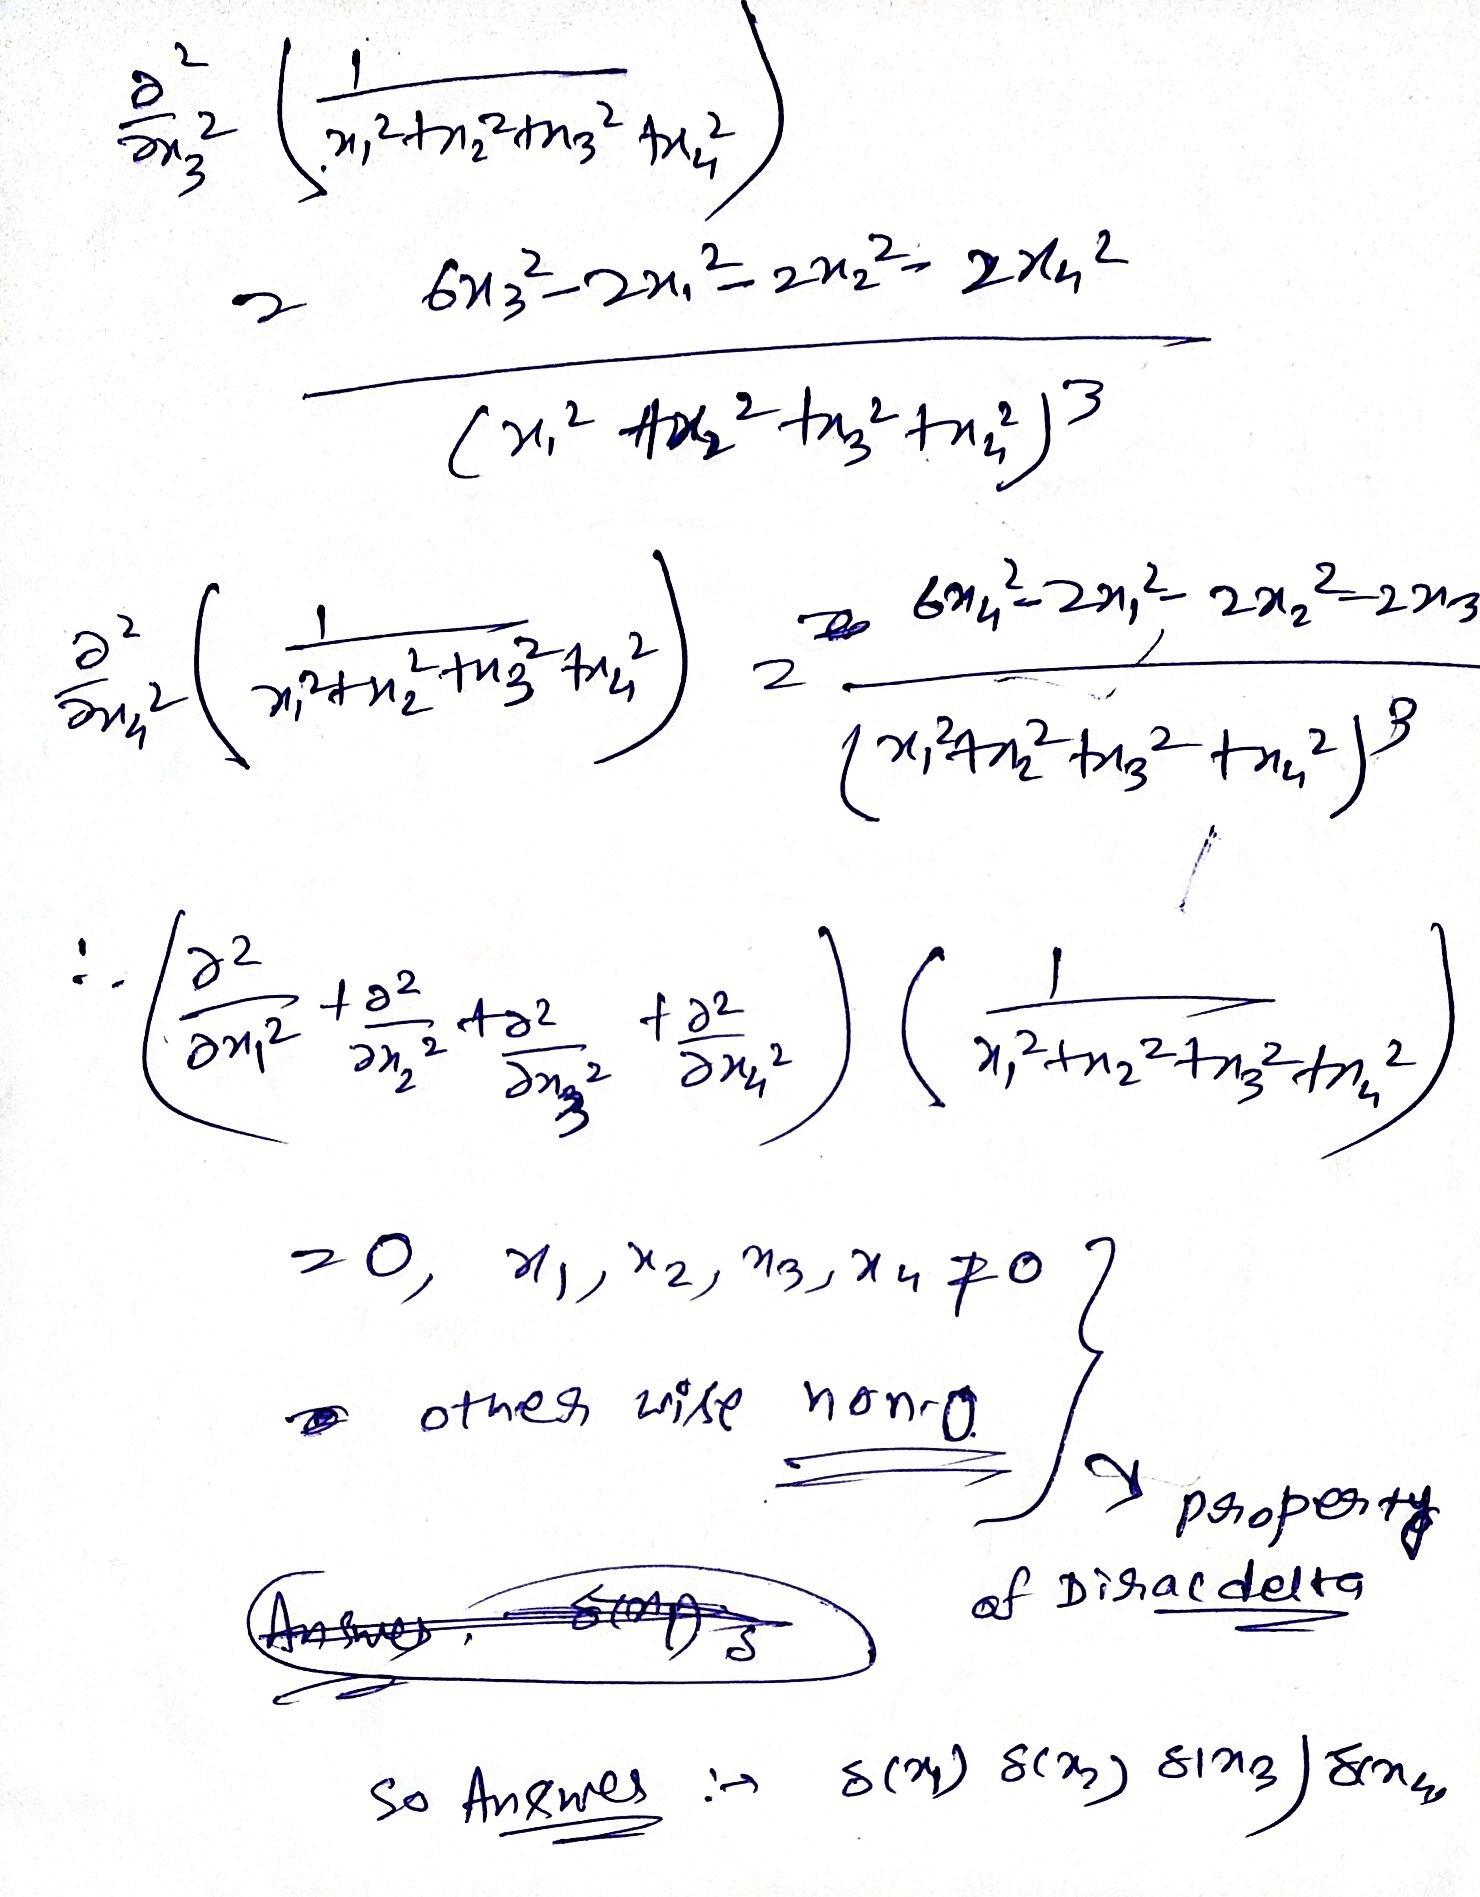 ∂²/∂x₃² ( 1/(x₁²+x₂²+x₃²+x₄²) )
= (6x₃²-2x₁²-2x₂²-2x₄²)/(x₁²+x₂²+x₃²+x₄²)³
∂²/∂x₄² ( 1/(x₁²+x₂²+x₃²+x₄²) ) = (6x₄²-2x₁²-2x₂²-2x₃)/(x₁²+x₂²+x₃²+x₄²)³
∴ ( ∂²/∂x₁² + ∂²/∂x₂² + ∂²/∂x₃² + ∂²/∂x₄² ) ( 1/(x₁²+x₂²+x₃²+x₄²) )
= 0, x₁, x₂, x₃, x₄ ≠ 0
other wise non-0
property
of Dirac delta
So Answer :→ δ(x₁) δ(x₂) δ(x₃) δ(x₄)